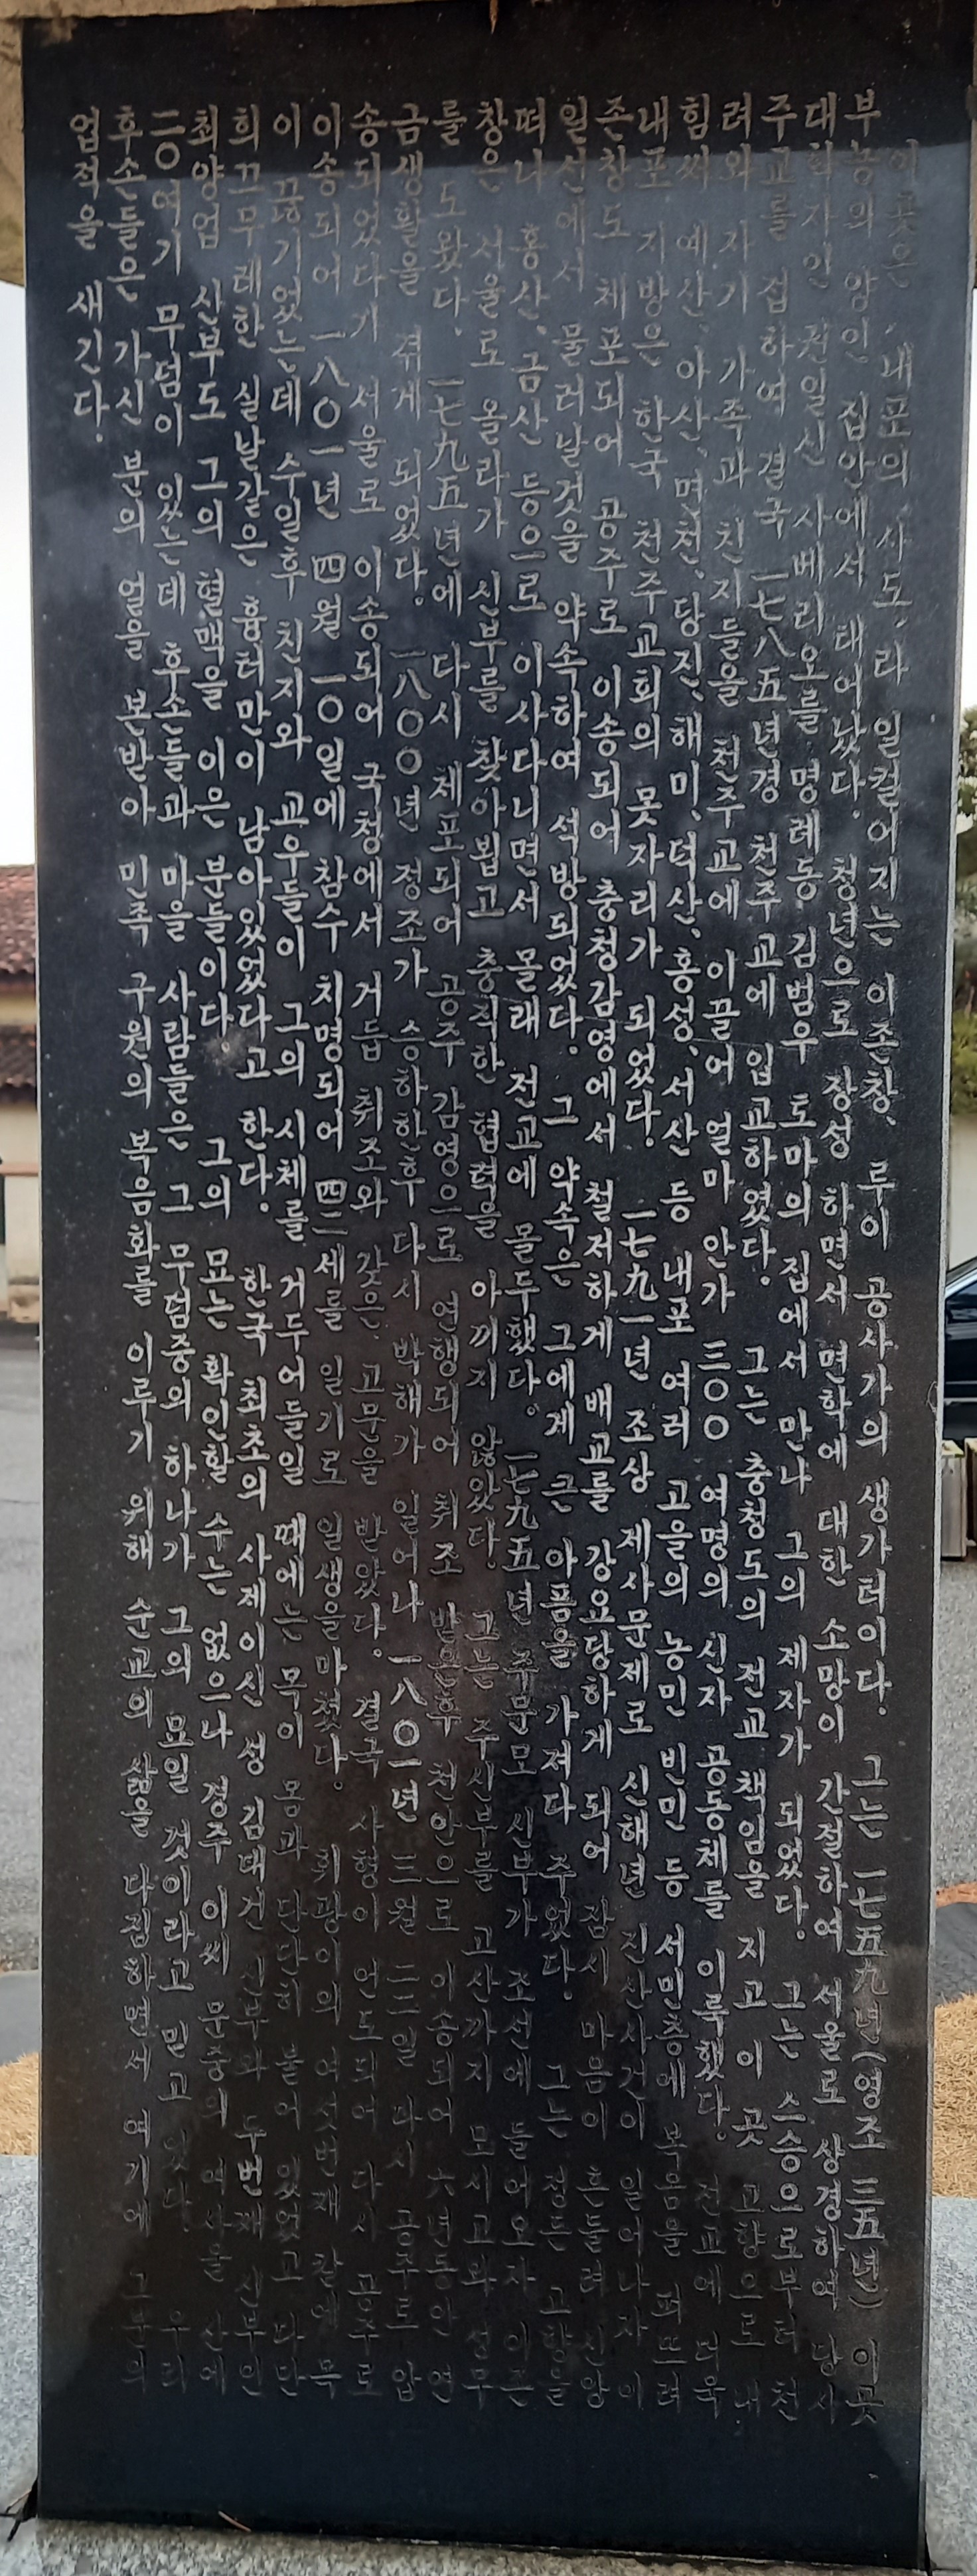 이곳은 ,내포의 사도,라 일컬어지는 이존창 루이 공사가의 생가터이다. 그는 一七五九년(영조 三五년) 이곳
부농의 양인 집안에서 태어났다. 청년으로 장성 하면서 면학에 대한 소망이 간절하여 서울로 상경하여 당시
대학자인 권일신 사베리오를 명례동 김범우 토마의 집에서 만나 그의 제자가 되었다. 그는 스승으로부터 천
주교를 접하여 결국 一七八五년경 천주교에 입교하였다. 그는 충청도의 전교 책임을 지고 이 곳 고향으로 내
려와 자기 가족과 친지들을 천주교에 이끌어 얼마 안가 三〇〇 여명의 신자 공동체를 이룩했다. 전교에 더욱
힘써 예산、아산、면천、당진、해미、덕산、홍성、서산 등 내포 여러 고을의 농민 빈민 등 서민층에 복음을 퍼뜨려
내포 지방은 한국 천주교회의 못자리가 되었다. 一七九一년 조상 제사문제로 신해년 진산사건이 일어나자 이
존창도 체포되어 공주로 이송되어 충청감영에서 철저하게 배교를 강요당하게 되어 잠시 마음이 흔들려 신앙
일선에서 물러날것을 약속하여 석방되었다. 그 약속은 그에게 큰 아픔을 가져다 주었다. 그는 정든 고향을
떠나 홍산、금산 등으로 이사다니면서 몰래 전교에 몰두했다. 一七九五년 주문모 신부가 조선에 들어오자 이존
창은 서울로 올라가 신부를 찾아뵙고 충직한 협력을 아끼지 않았다. 그는 주신부를 고산가지 모시고와 성무
를 도왔다. 一七九五년에 다시 체포되어 공주 감영으로 연행되어 취조 받은후 천안으로 이송되어 六년동안 연
금생활을 겪게 되었다. 一八〇〇년 정조가 승하한후 다시 박해가 일어나 一八〇一년 三월 二二일 다시 공주로 압
송되었다가 서울로 이송되어 국청에서 거듭 취조와 갖은 고문을 받았다. 결국 사형이 언도되어 다시 공주로
이송되어 一八〇一년 四월 一〇일에 참수 치명되어 四二세를 일기로 일생을마쳤다. 휘광이의 여섯번재 칼에 목
이 끊기었는데 수일후 친지와 교우들이 그의 시체를 거두어들일 때에는 목이 몸과 단단히 붙어 있었고 다만
희끄무레한 실날같은 흉터만이 남아있었다고 한다. 한국 최초의 사제이신 성 김대건 신부와 두번재 신부인
최양업 신부도 그의 혈맥을 이은 분들이다. 그의 묘는 확인할 수는 없으나 경주 이씨 문중의 여사울 산에
二〇여기 무덤이 있는데 후손들과 마을 사람들은 그 무덤중의 하나가 그의 묘일 것이라고 믿고 있다. 우리
후손들은 가신 분의 얼을 본받아 민족 구원의 복음화를 이루기 위해 순교의 삶을 다짐하면서 여기에 그분의
업적을 새긴다.